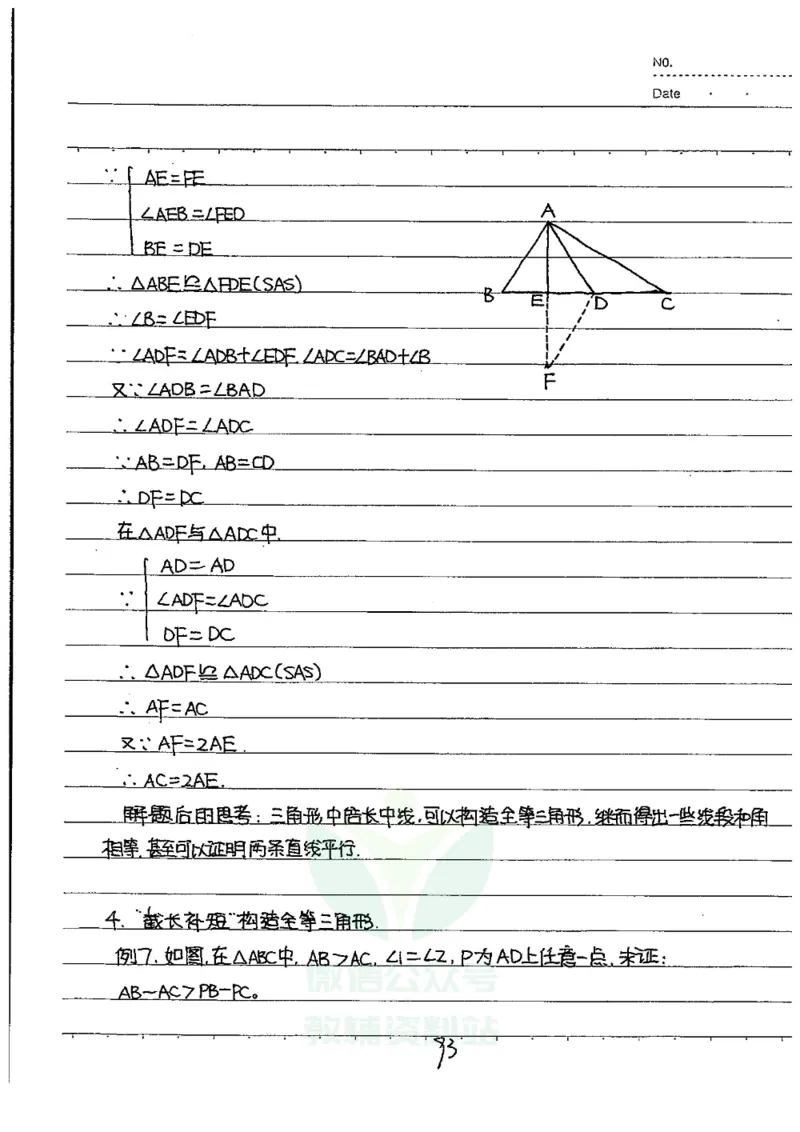 NO.
Date
∵ AE=FE
∠AEB=∠FED
BE=DE
∴ △ABE≌△FDE(SAS)
∴ ∠B=∠EDF
∵ ∠ADF=∠ADB+∠EDF, ∠ADC=∠BAD+∠B
又∵ ∠ADB=∠BAD
∴ ∠ADF=∠ADC
∵ AB=DF, AB=CD
∴ DF=DC
在△ADF与△ADC中,
AD=AD
∵ ∠ADF=∠ADC
DF=DC
∴ △ADF≌△ADC(SAS)
∴ AF=AC
又∵ AF=2AE.
∴ AC=2AE.
解题后的思考:三角形中倍长中线,可以构造全等三角形,继而得出一些线段和角
相等,甚至可以证明两条直线平行.
4. "截长补短"构造全等三角形.
例7.如图,在△ABC中, AB>AC, ∠1=∠2, P为AD上任意一点,求证:
AB-AC>PB-PC。
93
A
B
E
D
C
F
微信公众号
教辅资料站